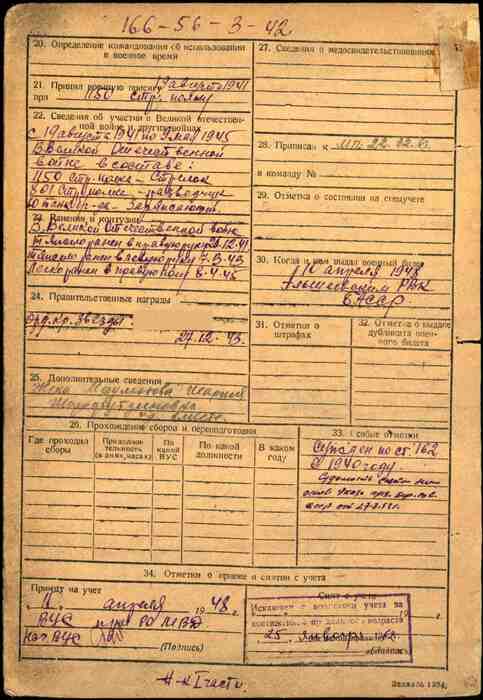 166-56-3-42
20. Определение командования об использовании
в военное время
21. Принял военную присягу 19 августа 1941
при 1150 стр. полку
22. Сведения об участии в Великой отечествен-
ной войне и других войнах
с 19 августа 1941 по 9 мая 1945
В Великой Отечественной
войне в составе:
1150 стр. полка - стрелок
801 стр. полк - разведчик
23. Ранения и контузии
В Великой Отечественной войне
Тяжело ранен в правую руку 12.41
ранен в левую 7-3-43
Легко ранен в правую ногу 8-4-45
24. Правительственные награды
Орд. Кр. Звезды
27.12.43.
25. Дополнительные сведения
Жена
27. Сведения о медосвидетельствовании
28. Приписан к
в команду №
29. Отметка о состоянии на спецучете
30. Когда и кем выдан военный билет
10 апреля 1948
Альшеевским РВК
БАССР.
31. Отметки о
штрафах
32. Отметка о выдаче
дубликата воен-
ного билета
26. Прохождение сборов и переподготовки
Где проходил
сборы
Продолжи-
тельность
(в днях, часах)
По
какой
ВУС
По какой
должности
В каком
году
33. Особые отметки
по ст. 162
в 1940 году.
Судимость снята
34. Отметки о приеме и снятии с учета
Принят на учет
апреля 1948 г.
ВУС при РО МВД
Нач ВУС
(Подпись)
Снят с учета
Исключен с воинского учета за
достижением предельного возраста
25 января
(Подпись)
Н-к I части.
Заказ № 1984.